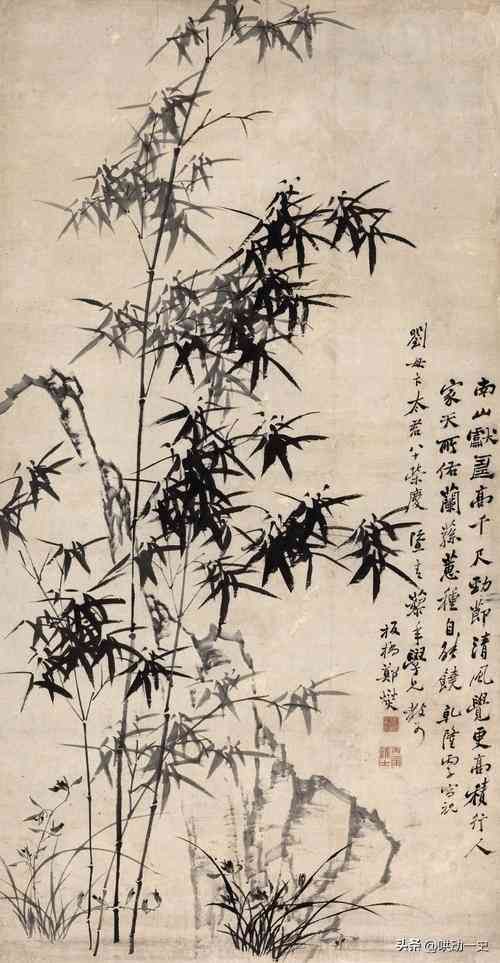 南山獻壽高千尺勁節清風覺更高積行人
家天所佑蘭蓀蕙種自能饒乾隆丙子寫祝
劉母卞太君八十榮慶 藜年學兄
板橋鄭燮
头条 @哄动一史